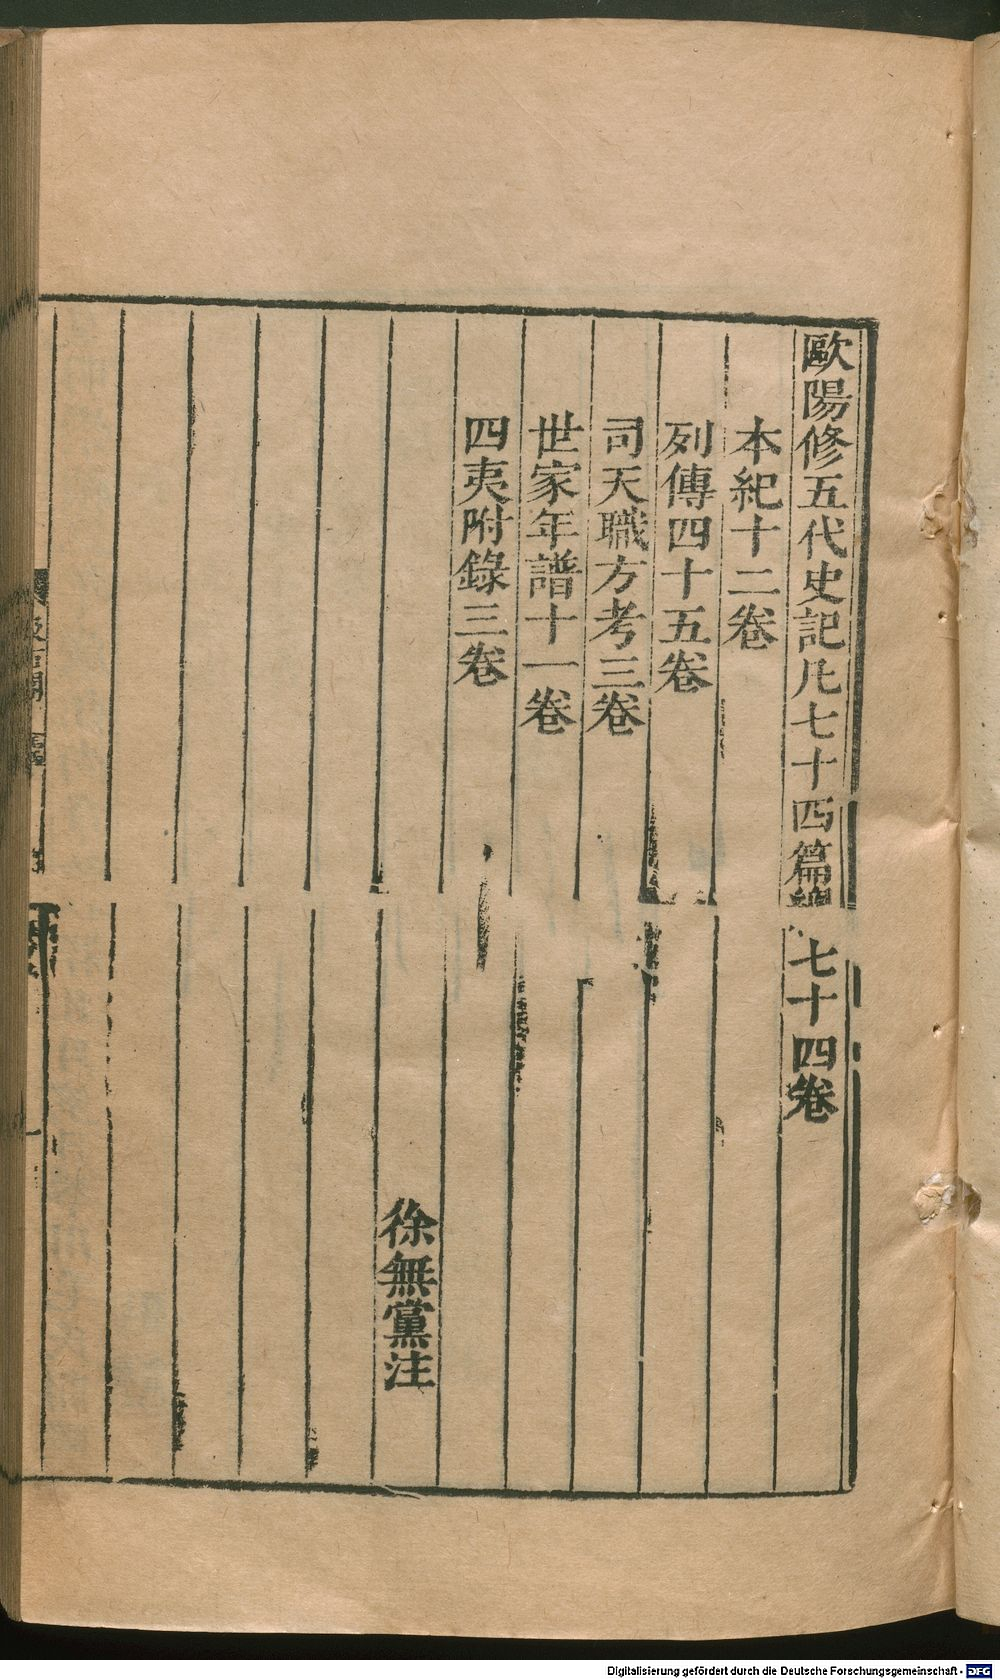 歐陽修五代史記凡七十四篇總七十四卷
本紀十二卷
列傳四十五卷
司天職方考三卷
世家年譜十一卷
四夷附錄三卷
徐無黨注
Digitalisierung gefördert durch die Deutsche Forschungsgemeinschaft - DFG